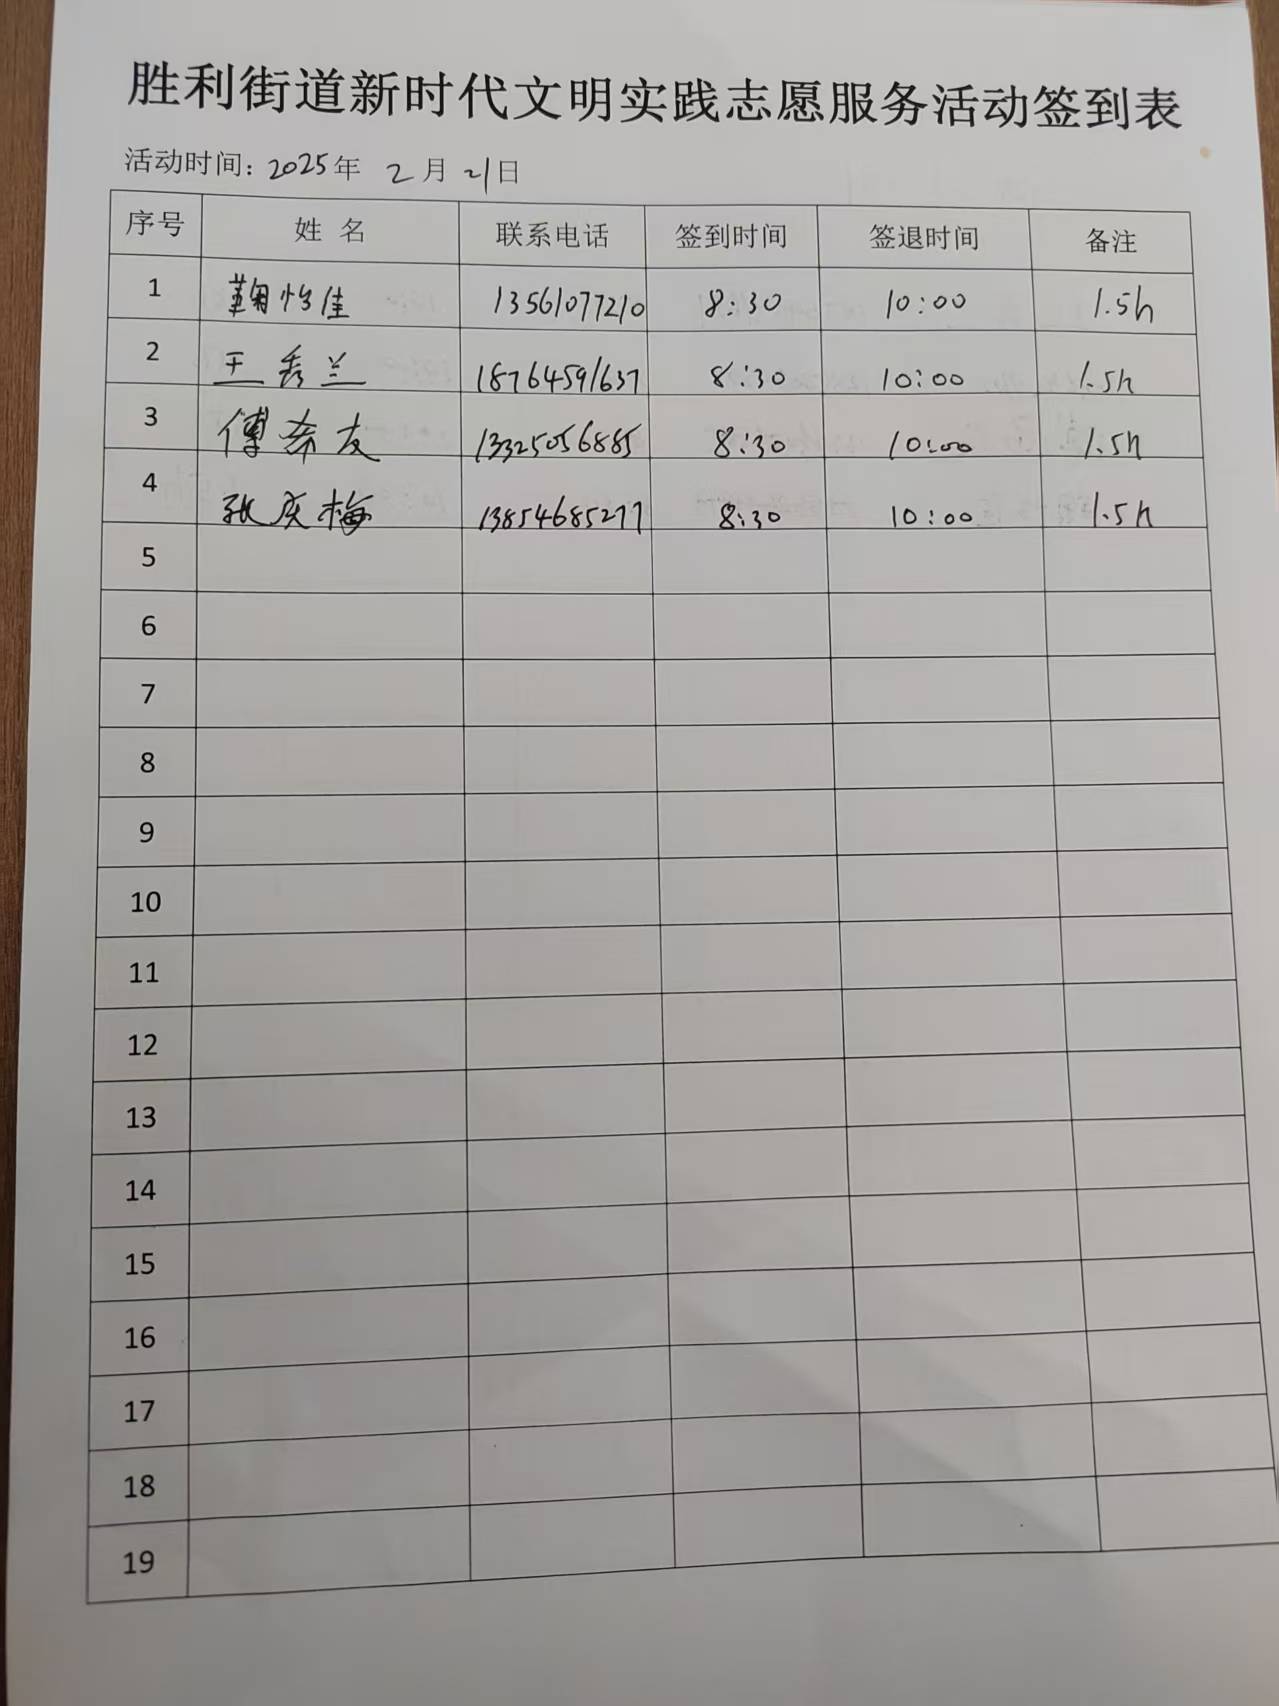 胜利街道新时代文明实践志愿服务活动签到表
活动时间: 2025年 2月 21日
序号 姓 名 联系电话 签到时间 签退时间 备注
1 鞠怡佳 13561077210 8:30 10:00 1.5h
2 王秀兰 18764591637 8:30 10:00 1.5h
3 傅希友 13325056885 8:30 10:00 1.5h
4 张庆梅 13854685277 8:30 10:00 1.5h
5
6
7
8
9
10
11
12
13
14
15
16
17
18
19